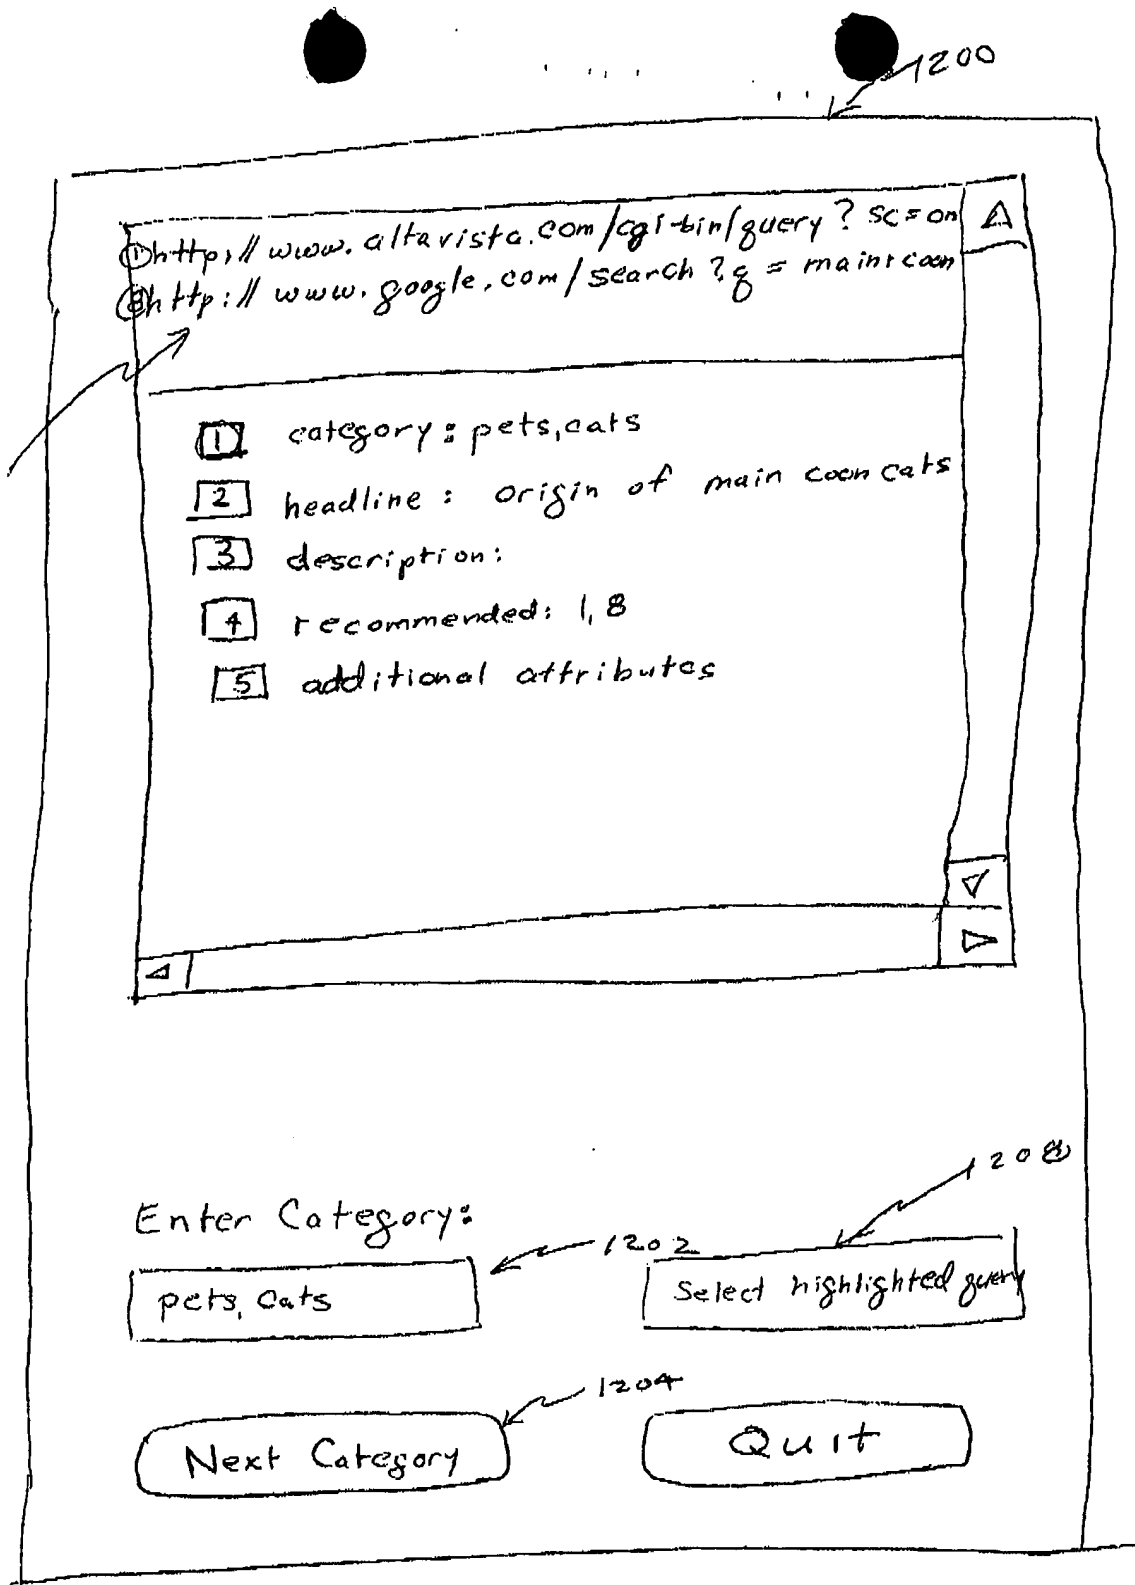 1200
①http://www.altavista.com/cgi-bin/query?sc=on
②http://www.google.com/search?q=main+coon
1 category: pets,cats
2 headline: origin of main coon cats
3 description:
4 recommended: 1,8
5 additional attributes
1208
Enter Category:
1202
pets, cats
Select highlighted query
1204
Next Category
Quit